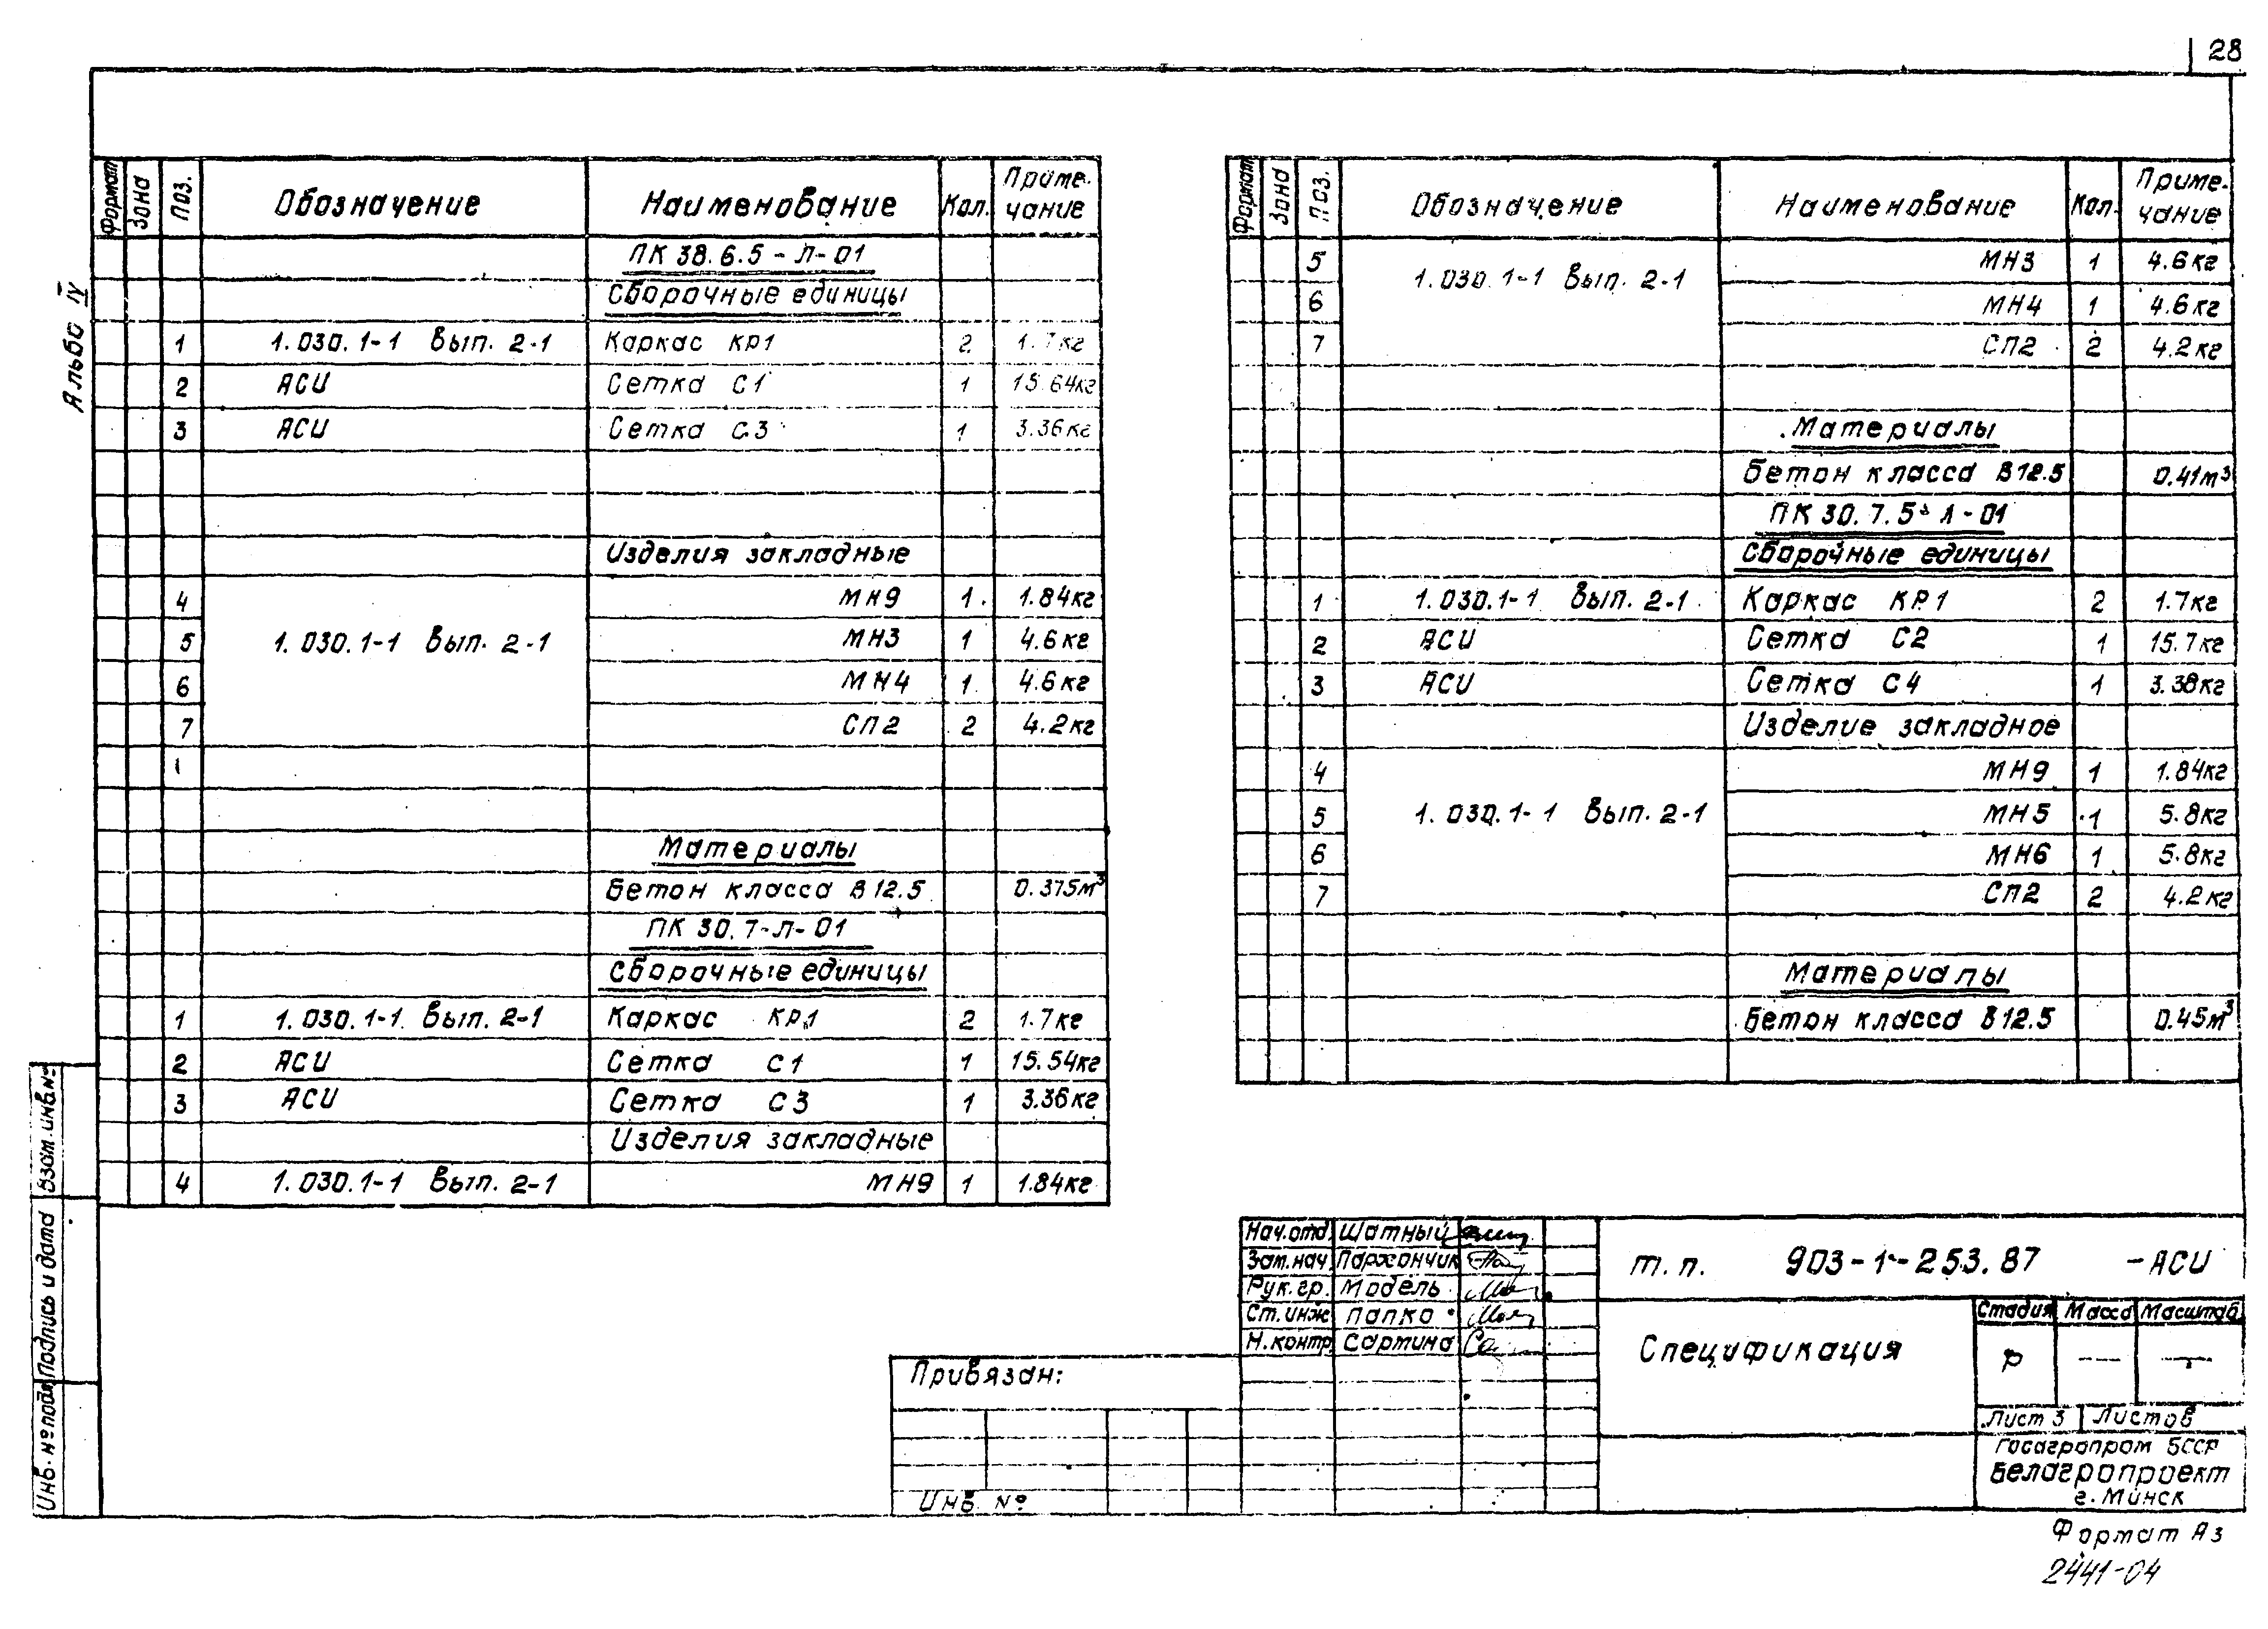 28
Альбо IV
Формат Зона Поз. Обозначение Наименование Кол. Приме-чание
ПК 38.6.5-Л-01
Сборочные единицы
1 1.030.1-1 Вып. 2-1 Каркас КР1 2 1.7кг
2 АСИ Сетка С1 1 15.64кг
3 АСИ Сетка С3 1 3.36кг
Изделия закладные
4 МН9 1 1.84кг
5 1.030.1-1 Вып. 2-1 МН3 1 4.6кг
6 МН4 1 4.6кг
7 СП2 2 4.2кг
Материалы
Бетон класса В12.5 0.375м³
ПК 30.7-Л-01
Сборочные единицы
1 1.030.1-1 Вып. 2-1 Каркас КР1 2 1.7кг
2 АСИ Сетка С1 1 15.54кг
3 АСИ Сетка С3 1 3.36кг
Изделия закладные
4 1.030.1-1 Вып. 2-1 МН9 1 1.84кг
Формат Зона Поз. Обозначение Наименование Кол. Приме-чание
5 1.030.1-1 Вып. 2-1 МН3 1 4.6кг
6 МН4 1 4.6кг
7 СП2 2 4.2кг
Материалы
Бетон класса В12.5 0.41м³
ПК 30.7.5-Л-01
Сборочные единицы
1 1.030.1-1 Вып. 2-1 Каркас КР1 2 1.7кг
2 АСИ Сетка С2 1 15.7кг
3 АСИ Сетка С4 1 3.38кг
Изделие закладное
4 МН9 1 1.84кг
5 1.030.1-1 Вып. 2-1 МН5 1 5.8кг
6 МН6 1 5.8кг
7 СП2 2 4.2кг
Материалы
Бетон класса В12.5 0.45м³
Взам.инв.№
Подпись и дата
Инв.№подл
Привязан:
Инв. №
Нач.отд. Шатный
Зам.нач. Пархончик
Рук.гр. Модель
Ст.инж. Папко
Н.контр. Сартина
т.п. 903-1-253.87 -АСИ
Спецификация
Стадия Масса Масштаб
Р — —
Лист 3 Листов
Госагропром БССР
Белагропроект
г. Минск
Формат А3
2441-04